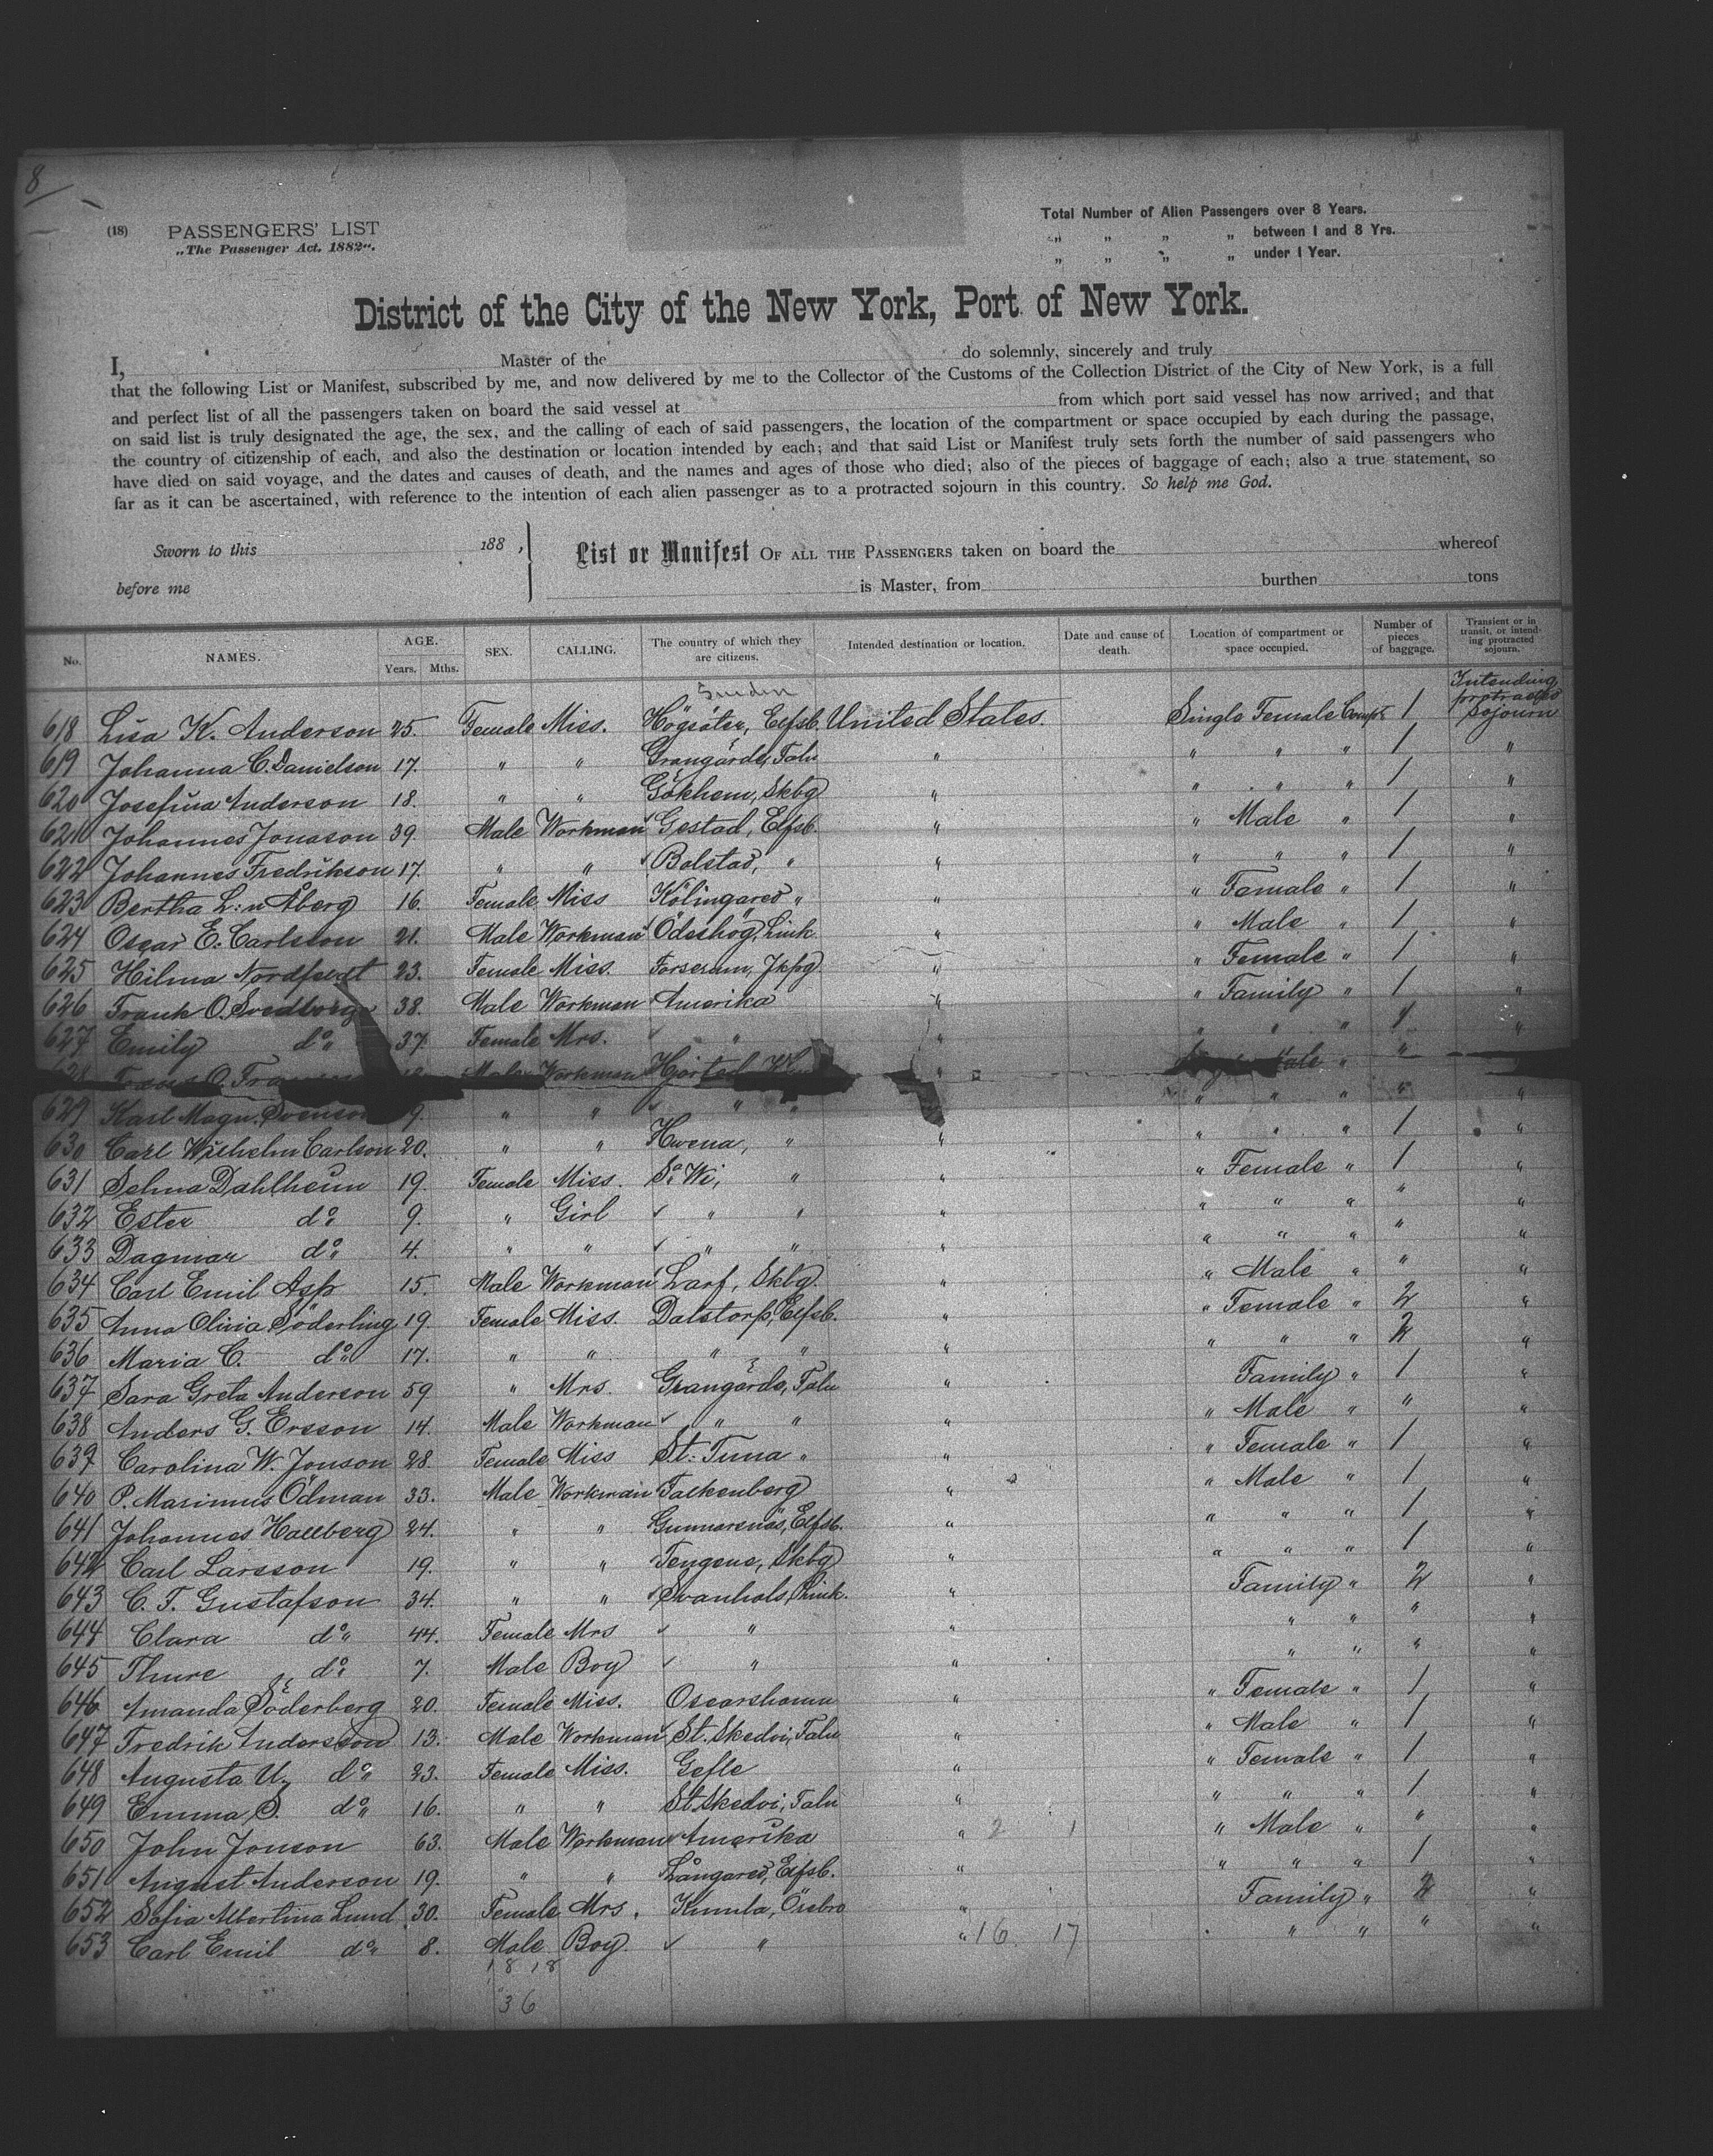 8
(18) PASSENGERS' LIST
„The Passenger Act, 1882“.
Total Number of Alien Passengers over 8 Years.
„ „ „ „ between 1 and 8 Yrs.
„ „ „ „ under 1 Year.
District of the City of the New York, Port of New York.
I, Master of the do solemnly, sincerely and truly
that the following List or Manifest, subscribed by me, and now delivered by me to the Collector of the Customs of the Collection District of the City of New York, is a full
and perfect list of all the passengers taken on board the said vessel at from which port said vessel has now arrived; and that
on said list is truly designated the age, the sex, and the calling of each of said passengers, the location of the compartment or space occupied by each during the passage,
the country of citizenship of each, and also the destination or location intended by each; and that said List or Manifest truly sets forth the number of said passengers who
have died on said voyage, and the dates and causes of death, and the names and ages of those who died; also of the pieces of baggage of each; also a true statement, so
far as it can be ascertained, with reference to the intention of each alien passenger as to a protracted sojourn in this country. So help me God.
Sworn to this 188 , List or Manifest OF ALL THE PASSENGERS taken on board the whereof
before me is Master, from burthen tons
No. NAMES. AGE. Years. Mths. SEX. CALLING. The country of which they are citizens. Intended destination or location. Date and cause of death. Location of compartment or space occupied. Number of pieces of baggage. Transient or in transit, or intending protracted sojourn.
Sweden
618 Lisa K. Anderson 25. Female Miss. Högsäter, Elfsb. United States. Single Female Compt. 1 Intending protracted Sojourn
619 Johanna C. Danielson 17. " " Grangärde, Falu " " " " 1 "
620 Josefina Anderson 18. " " Gökhem, Skbg " " " " 1 "
621 Johannes Jonason 39. Male Workman Gestad, Elfsb. " " Male " 1 "
622 Johannes Fredrikson 17. " " Bolstad, " " " " " 1 "
623 Bertha L:n Åberg 16. Female Miss Kölingared " " " Female " 1 "
624 Oscar E. Carlsson 21. Male Workman Ödeshög, Link. " " Male " 1 "
625 Hilma Nordfeldt 23. Female Miss. Forserum, Jkpg " " Female " 1 "
626 Frank O. Svedberg 38. Male Workman Amerika " " Family " 1 "
627 Emily do 37. Female Mrs. " " " " " 1 "
628 O. Male Workman Hjorted " Male " " "
629 Karl Magn. Svenson 9. " " " " " " " " " "
630 Carl Wilhelm Carlson 20. " " Hvena, " " " " " 1 "
631 Selma Dahlheim 19. Female Miss. Sa Wi, " " " Female " 1 "
632 Ester do 9. " Girl " " " " " " " "
633 Dagmar do 4. " " " " " " " " " "
634 Carl Emil Asp 15. Male Workman Larf, Skbg. " " Male " " "
635 Anna Olivia Söderling 19. Female Miss. Dalstorp, Elfsb. " " Female " 2 "
636 Maria C. do 17. " " " " " " " " 2 "
637 Sara Greta Anderson 59 " Mrs. Grangärde, Falu " Family " 1 "
638 Anders G. Ersson 14. Male Workman " " " " Male " " "
639 Carolina W. Jonson 28. Female Miss St. Tuna " " " Female " 1 "
640 P. Marinus Ödman 33. Male Workman Falkenberg " " Male " 1 "
641 Johannes Hallberg 24. " " Gunnarsnäs, Elfsb. " " " " 1 "
642 Carl Larsson 19. " " Tengene, Skbg " " " " 1 "
643 C. F. Gustafson 34. " " Svanhals, Link. " Family " 2 "
644 Clara do 44. Female Mrs " " " " " "
645 Thure do 7. Male Boy " " " " " "
646 Amanda Söderberg 20. Female Miss. Oscarshamn " " Female " 1 "
647 Fredrik Andersson 13. Male Workman St. Skedvi, Falu " " Male " 1 "
648 Augusta U. do 23. Female Miss. Gefle " " Female " 1 "
649 Emma S. do 16. " " St. Skedvi, Falu " " " " 1 "
650 John Jonson 63. Male Workman Amerika " 2 1 " Male " " "
651 August Anderson 19. " " Långared, Elfsb. " " " " 1 "
652 Sofia Albertina Lund 30. Female Mrs. Kumla, Örebro " Family " 2 "
653 Carl Emil do 8. Male Boy " " 16 17 " " " "
18 18
36